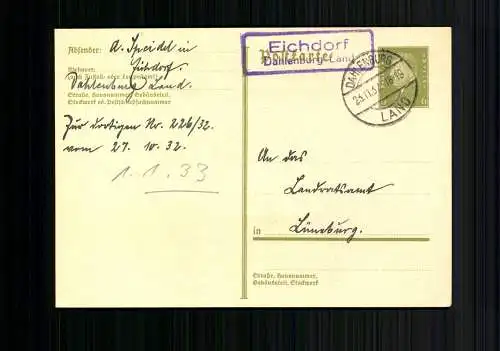 Absender: A. Speidel in
Eichdorf
Wohnort:
(auch Zustell- oder Leitpostamt)
Dahlenburg Land.
Straße, Hausnummer, Gebäudeteil,
Stockwerk od. Postschließfachnummer
Zur dortigen Nr. 226/32.
vom 27. 10. 32.
1. 1. 33
Eichdorf
Dahlenburg-Land
Postkarte
DAHLENBURG
LAND
An das
Landratsamt
in Lüneburg.
Straße, Hausnummer,
Gebäudeteil, Stockwerk